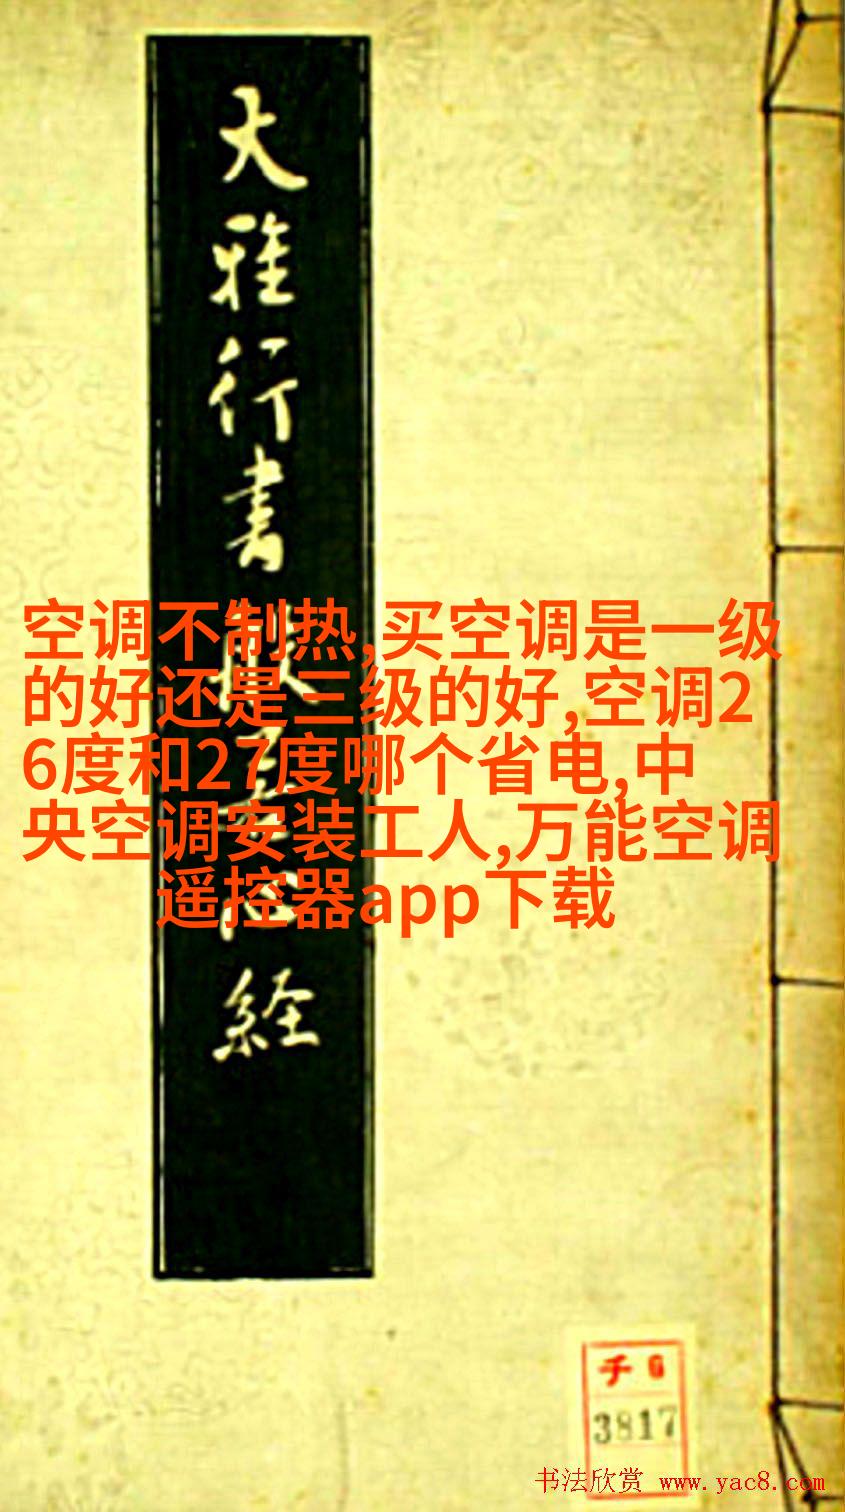 大雅行書般若心経
空调不制热,买空调是一级
的好还是三级的好,空调2
6度和27度哪个省电,中
央空调安装工人,万能空调
遥控器app下载
千 G
3817
书法欣赏 www.yac8.com